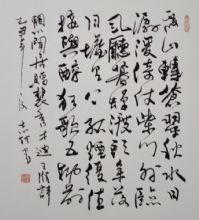 寒山轉蒼翠秋水日
潺湲倚仗柴門外臨
風聽暮蟬渡頭余落
日墟里上孤煙復值
接輿醉狂歌五柳前
輞川閑居贈裴秀才迪王維詩